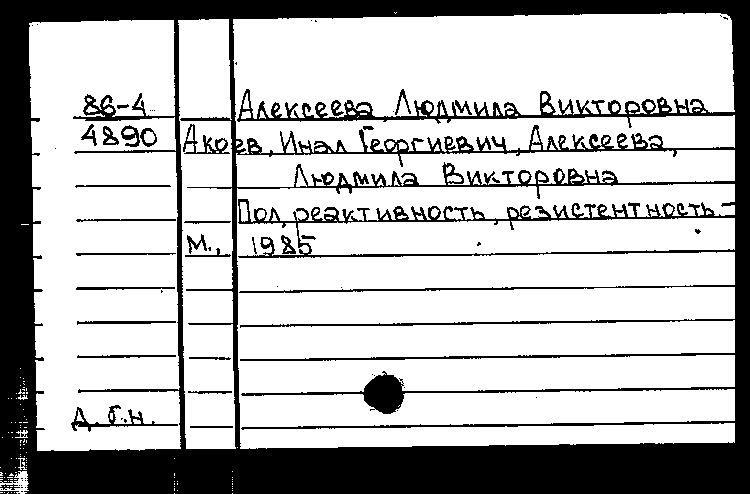 86-4 Алексеева, Людмила Викторовна
4890 Акоев, Инал Георгиевич, Алексеева,
Людмила Викторовна
Пол, реактивность, резистентность.-
М., 1985
Д.б.н.